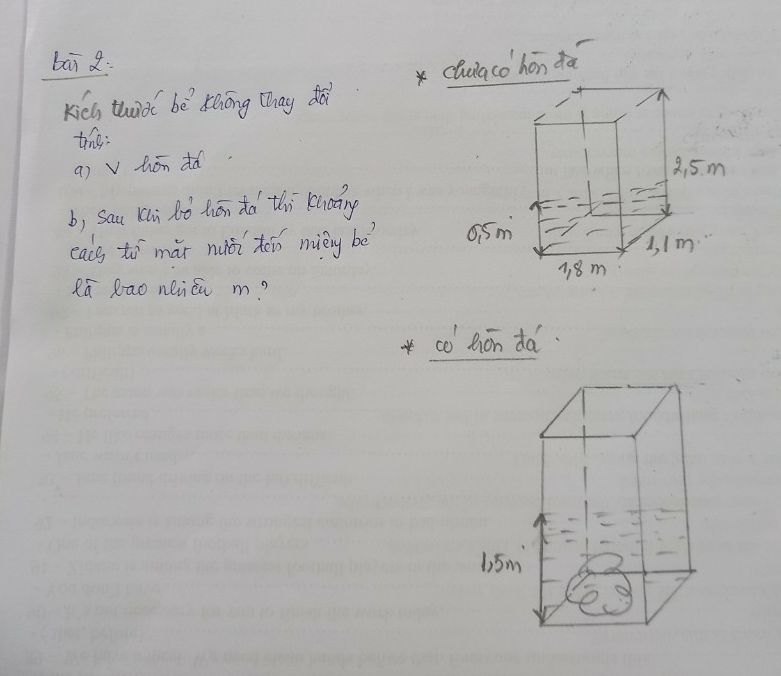 bài 2:
Kích thước bể không thay đổi
tính:
a) V hòn đá
b, Sau khi bỏ hòn đá thì khoảng
cách từ mặt nước đến miệng bể
là bao nhiêu m?
* chưa có hòn đá
2,5 m
0,5 m
1,1 m
1,8 m
* có hòn đá
1,5 m